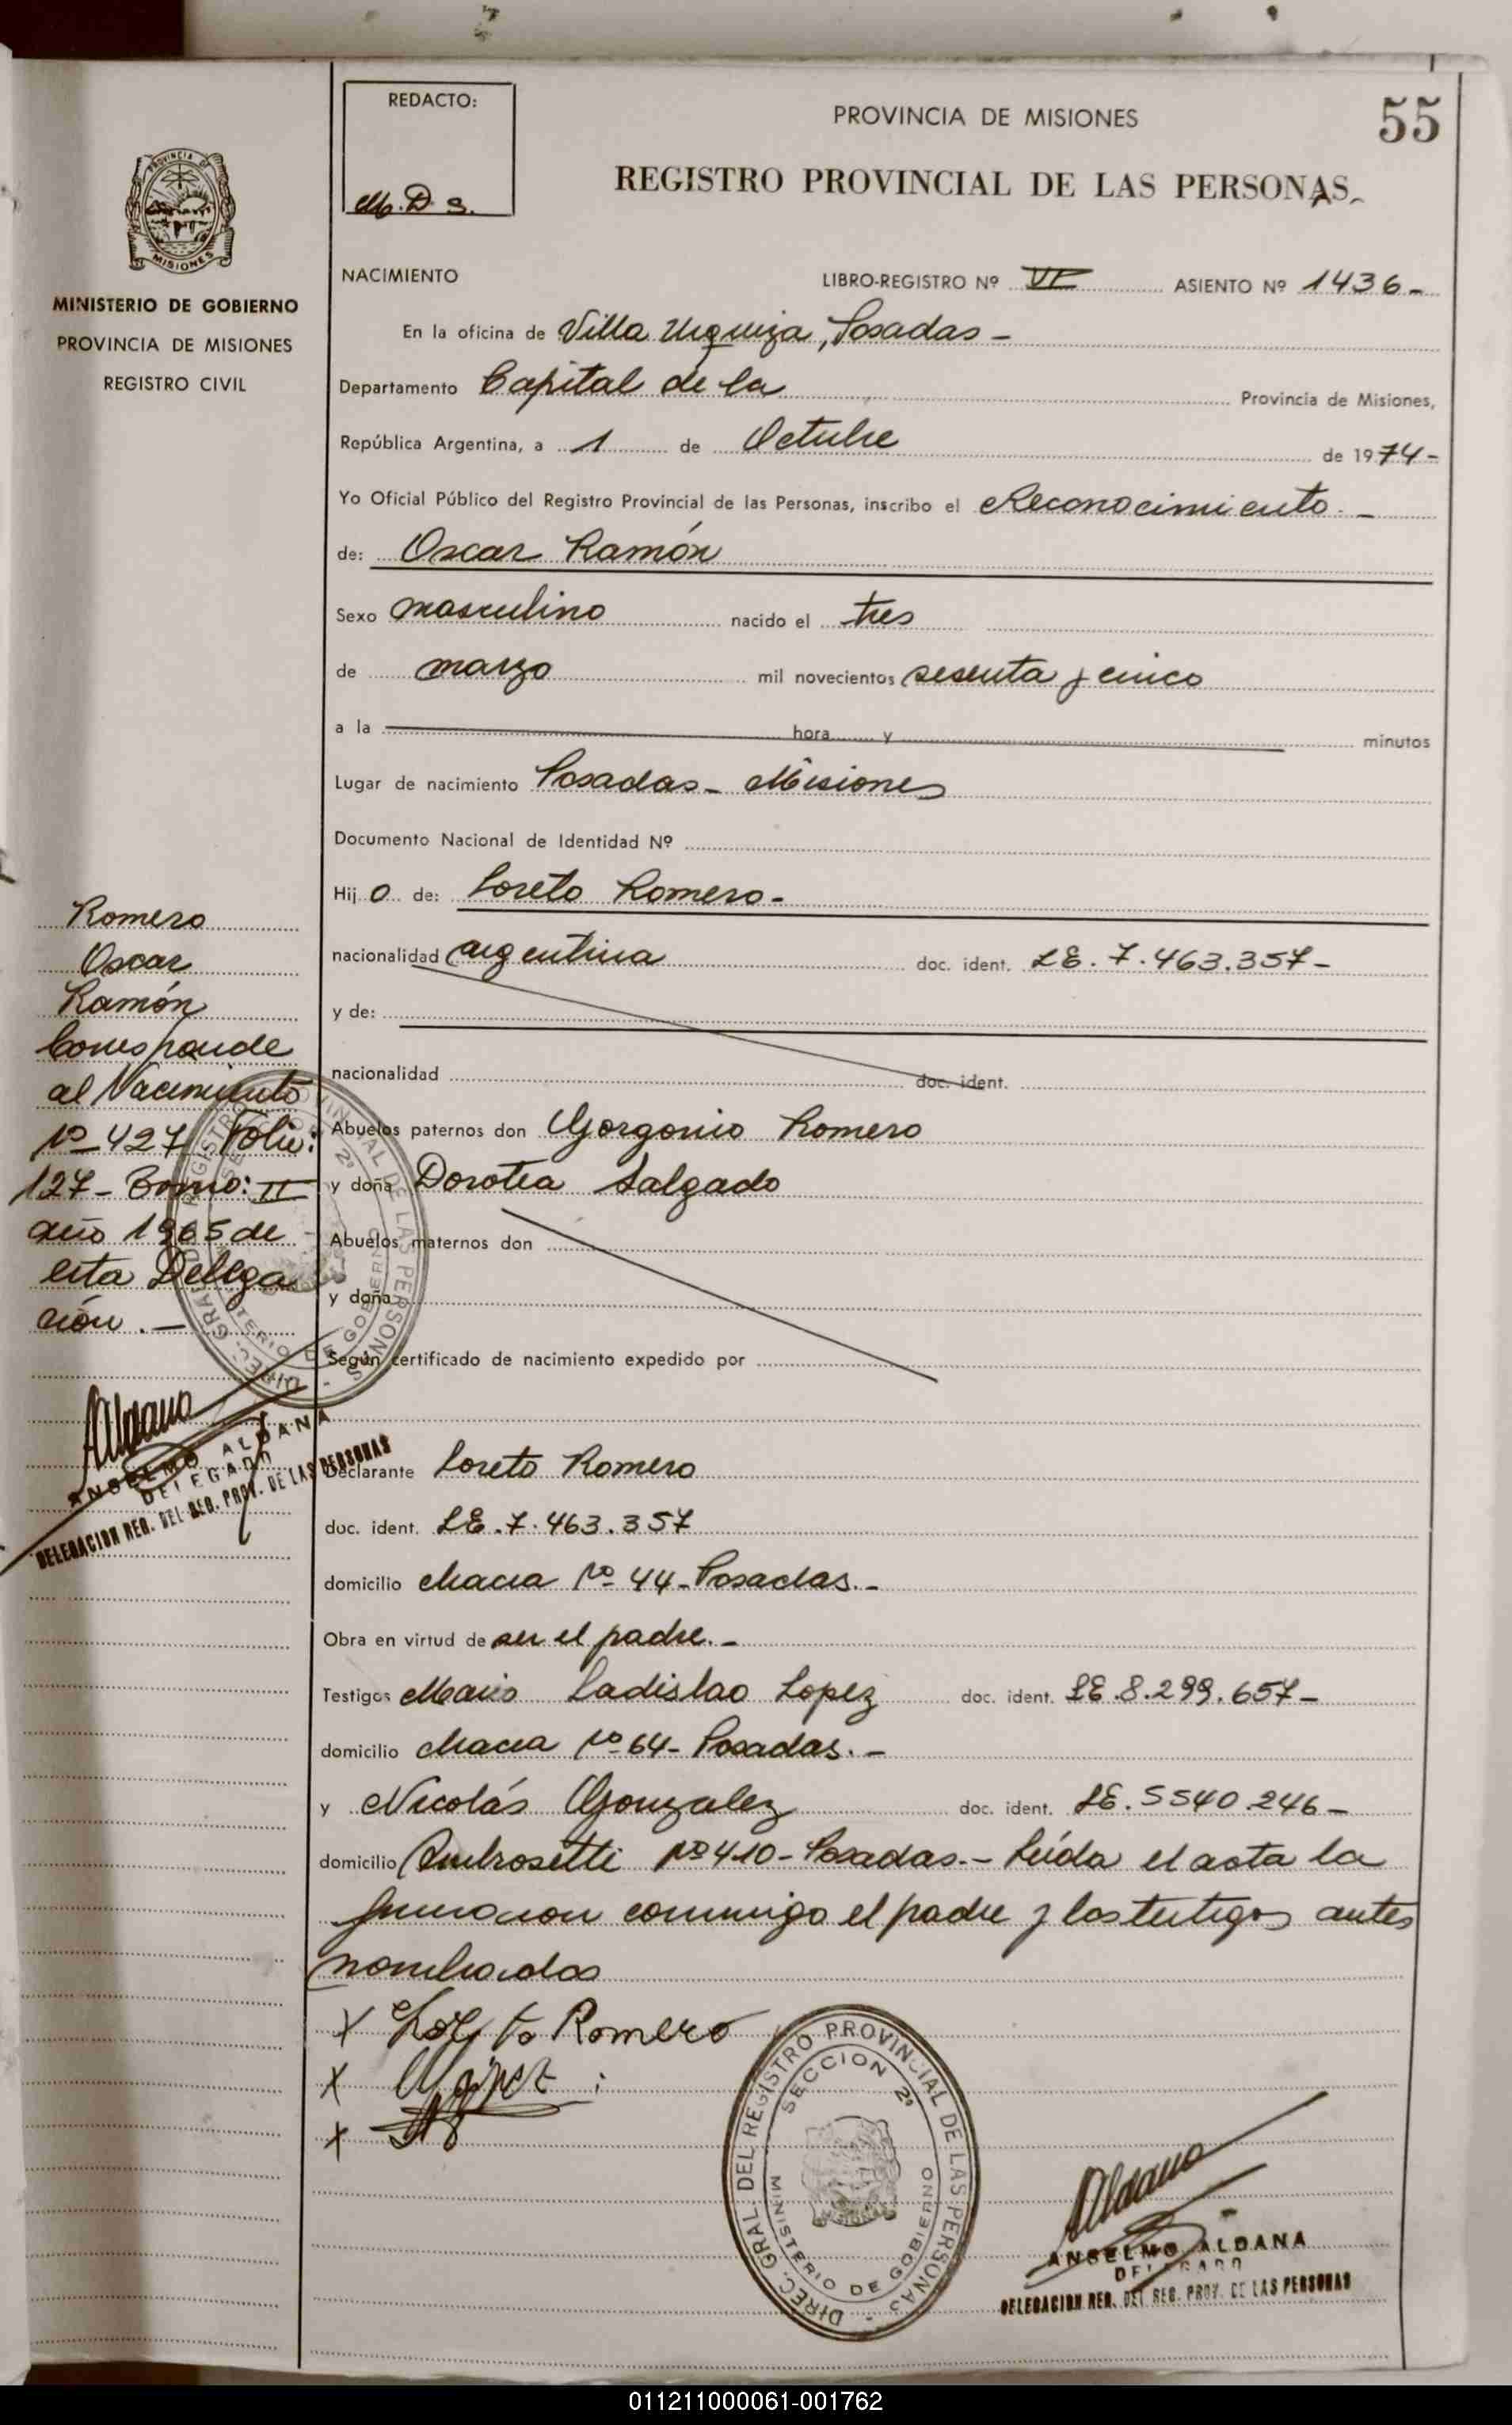 REDACTO:
M. D. S.
PROVINCIA DE MISIONES
55
REGISTRO PROVINCIAL DE LAS PERSONAS
PROVINCIA DE
MISIONES
MINISTERIO DE GOBIERNO
PROVINCIA DE MISIONES
REGISTRO CIVIL
NACIMIENTO LIBRO-REGISTRO Nº VI ASIENTO Nº 1436-
En la oficina de Villa Urquiza, Posadas -
Departamento Capital de la Provincia de Misiones,
República Argentina, a 1 de Octubre de 1974-
Yo Oficial Público del Registro Provincial de las Personas, inscribo el Reconocimiento. -
de: Oscar Ramón
Sexo masculino nacido el tres
de marzo mil novecientos sesenta y cinco
a la hora y minutos
Lugar de nacimiento Posadas - Misiones
Documento Nacional de Identidad Nº
Hij o de: Loreto Romero -
nacionalidad argentina doc. ident. LE. 7.463.357-
y de:
nacionalidad doc. ident.
Abuelos paternos don Gorgonio Romero
y doña Dorotea Salgado
Abuelos maternos don
y doña
Según certificado de nacimiento expedido por
Declarante Loreto Romero
doc. ident. LE. 7.463.357
domicilio chacra Nº 44 - Posadas. -
Obra en virtud de ser el padre. -
Testigos Mario Ladislao Lopez doc. ident. LE. 8.299.657-
domicilio chacra Nº 64 - Posadas. -
y Nicolás Gonzalez doc. ident. LE. 5540.246-
domicilio Ambrosetti Nº 410 - Posadas. - Leída el acta la
firmaron conmigo el padre y los testigos antes
nombrados
x Loreto Romero
x
x
Romero
Oscar
Ramón
Corresponde
al Nacimiento
Nº 427 Folio:
127 - Tomo: II
año 1965 de
esta Delega
ción. -
Aldana
ANSELMO ALDANA
DELEGADO
DELEGACION REG. DEL REG. PROV. DE LAS PERSONAS
DIREC. GRAL. DEL REGISTRO PROVINCIAL DE LAS PERSONAS -
SECCION 2ª
MINISTERIO DE GOBIERNO
DIREC. GRAL. DEL REGISTRO PROVINCIAL DE LAS PERSONAS -
SECCION 2ª
MINISTERIO DE GOBIERNO
Aldana
ANSELMO ALDANA
DELEGADO
DELEGACION REG. DEL REG. PROV. DE LAS PERSONAS
011211000061-001762